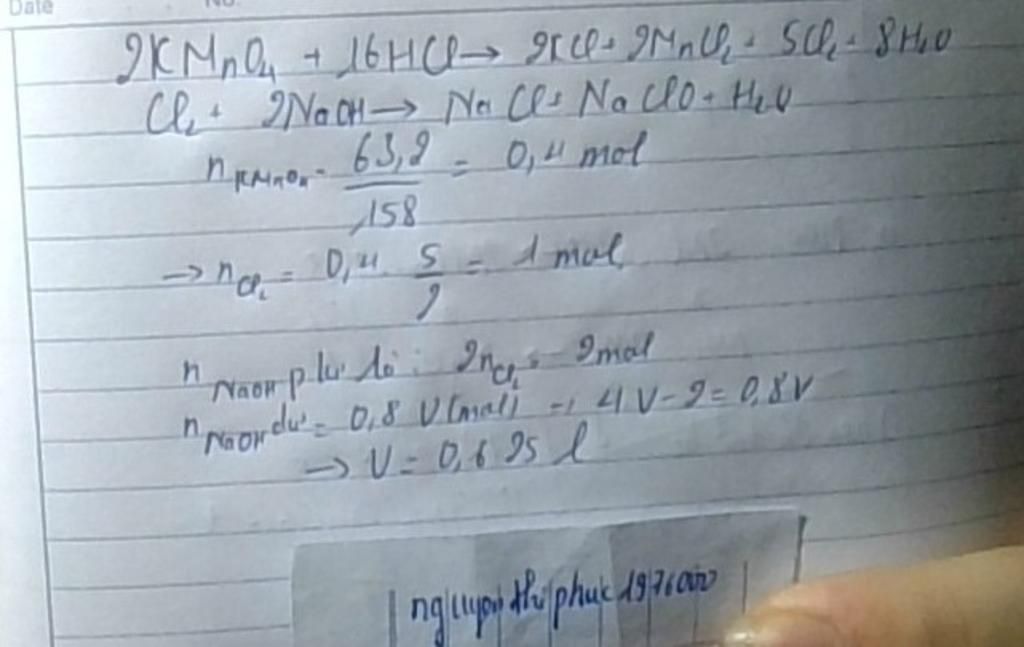 Date No.
2KMnO₄ + 16HCl → 2KCl + 2MnCl₂ + 5Cl₂ + 8H₂O
Cl₂ + 2NaOH → NaCl + NaClO + H₂O
n KMnO₄ = 63,2/158 = 0,4 mol
→ n Cl₂ = 0,4 . 5/2 = 1 mol
n NaOH pư là : 2n Cl₂ = 2 mol
n NaOH dư = 0,8 V (mol) → 4V - 2 = 0,8V
→ V = 0,625 l
nguyen thi phuc 1976000